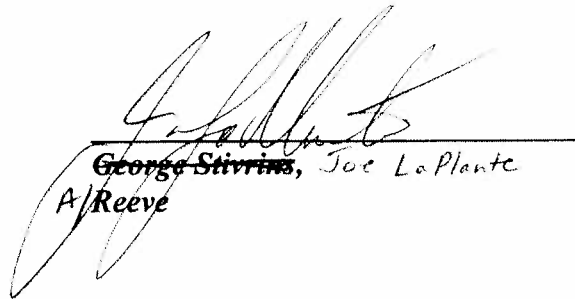 George Stivrins, Joe LaPlante
A/Reeve